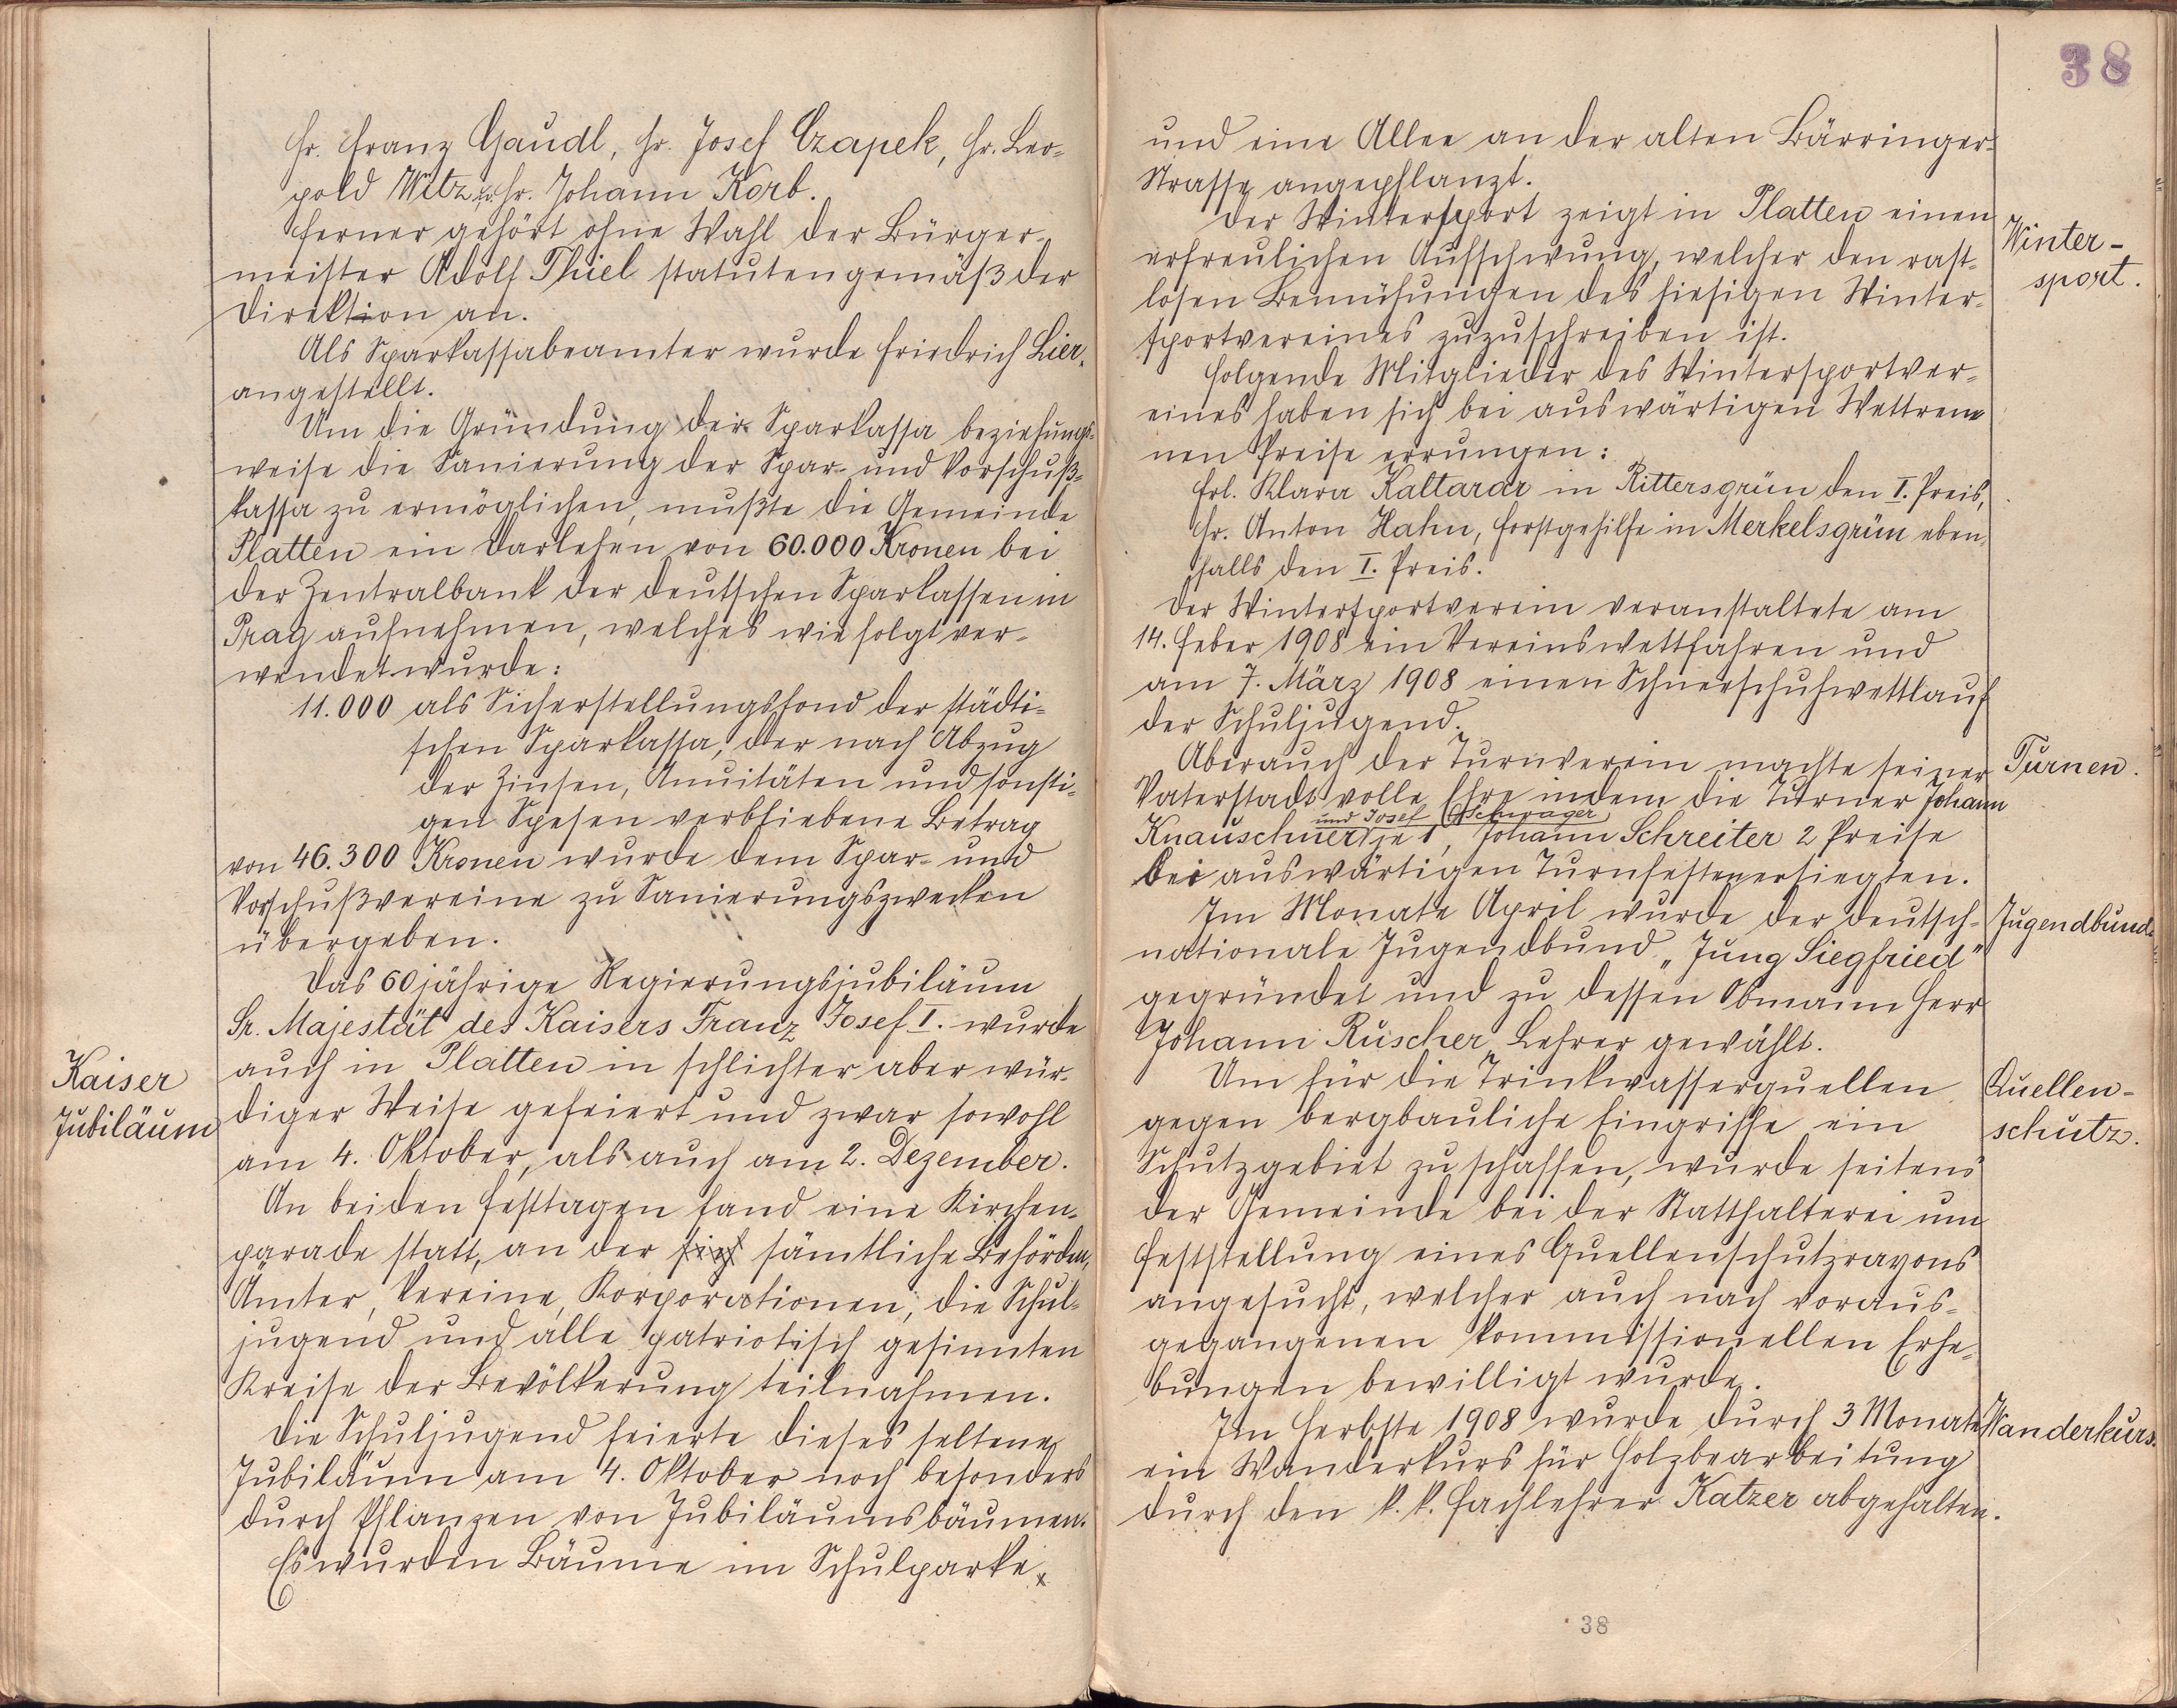 Hr. Franz Gaudl, Hr. Josef Czapek, Hr. Leo-
pold Witz u. Hr. Johann Korb.
Ferner gehört ohne Wahl der Bürger-
meister Adolf Thiel statutengemäß der
Direktion an.
Als Sparkassabeamter wurde Friedrich Lier
angestellt.
Um die Gründung der Sparkassa beziehungs-
weise die Sanierung der Spar- und Vorschuß-
kassa zu ermöglichen, mußte die Gemeinde
Platten ein Darlehen von 60.000 Kronen bei
der Zentralbank der deutschen Sparkassen in
Prag aufnehmen, welches wie folgt ver-
wendet wurde:
11.000 als Sicherstellungsfond der städti-
schen Sparkassa, der nach Abzug
der Zinsen, Anuitäten und sonsti-
gen Spesen verbliebene Betrag
von 46.300 Kronen wurde dem Spar- und
Vorschußvereine zu Sanierungszwecken
übergeben.
Das 60jährige Regierungsjubiläum
Sr. Majestät des Kaisers Franz Josef I. wurde
Kaiser
Jubiläum
auch in Platten in schlichter aber wür-
diger Weise gefeiert und zwar sowohl
am 4. Oktober, als auch am 2. Dezember.
An beiden Festtagen fand eine Kirchen-
parade statt, an der sich sämtliche Behörden,
Ämter, Vereine, Korporationen, die Schul-
jugend und alle patriotisch gesinnten
Kreise der Bevölkerung teilnahmen.
Die Schuljugend feierte dieses seltene
Jubiläum am 4. Oktober noch besonders
durch Pflanzen von Jubiläumsbäumen.
Es wurden Bäume im Schulparke
38
und eine Allee an der alten Bärringer-
Strasse angepflanzt.
Der Wintersport zeigt in Platten einen
Winter-
sport.
erfreulichen Aufschwung, welcher den rast-
losen Bemühungen des hiesigen Winter-
sportvereines zuzuschreiben ist.
Folgende Mitglieder des Wintersportver-
eines haben sich bei auswärtigen Wettren-
nen Preise errungen:
Frl. Klara Kaltarar in Rittersgrün den I. Preis,
Hr. Anton Hahn, Forstgehilfe in Merkelsgrün eben-
falls den I. Preis.
Der Wintersportverein veranstaltete am
14. Feber 1908 ein Vereinswettfahren und
am 7. März 1908 einen Schneeschuhwettlauf
der Schuljugend.
Aber auch der Turnverein machte seiner
Turnen.
Vaterstadt volle Ehre indem die Turner Johann
und Josef Gschrager
Knauschner je 1, Johann Schreiter 2 Preise
bei auswärtigen Turnfesten ersiegten.
Im Monate April wurde der deutsch-
Jugendbund.
nationale Jugendbund „Jung Siegfried"
gegründet und zu dessen Obmann Herr
Johann Ruscher, Lehrer gewählt.
Um für die Trinkwasserquellen
Quellen-
schutz.
gegen bergbauliche Eingriffe ein
Schutzgebiet zu schaffen, wurde seitens
der Gemeinde bei der Statthalterei um
Feststellung eines Quellenschutzrayons
angesucht, welcher auch nach voraus-
gegangenen kommissionellen Erhe-
bungen bewilligt wurde.
Im Herbste 1908 wurde durch 3 Monate
Wanderkurs.
ein Wanderkurs für Holzbearbeitung
durch den k.k. Fachlehrer Katzer abgehalten.
38